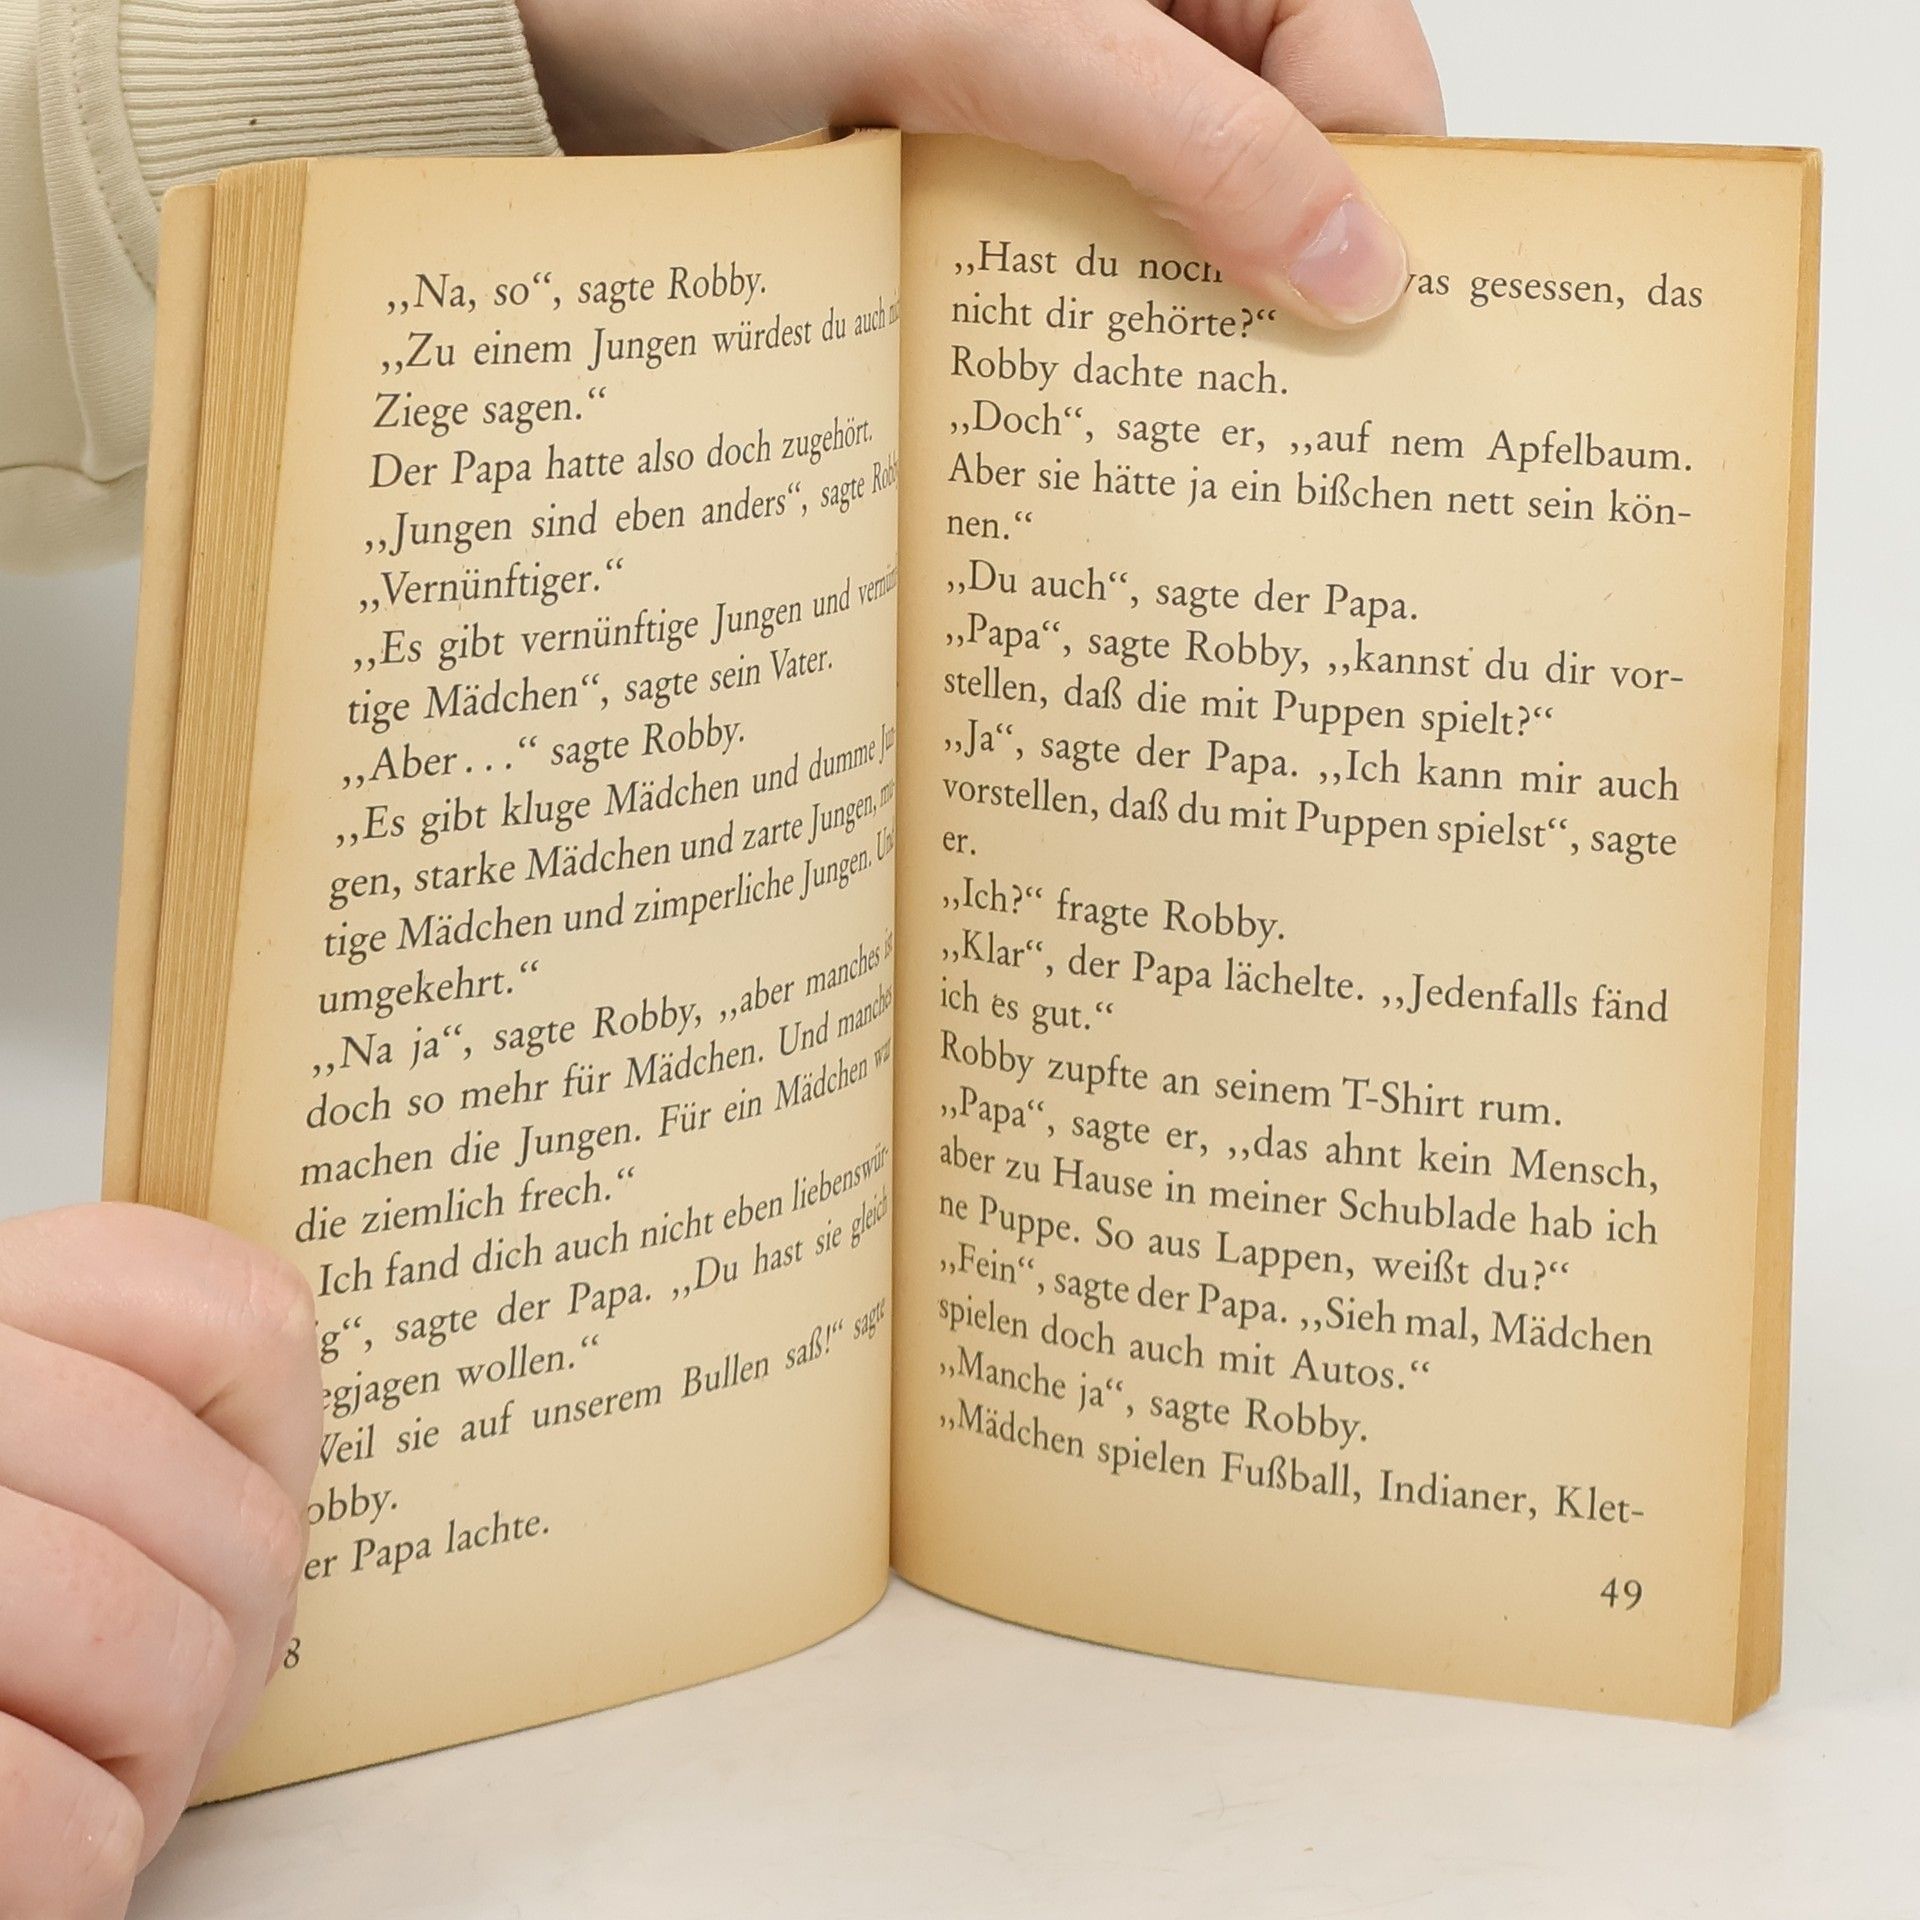 ,,Na, so“, sagte Robby.
,,Zu einem Jungen würdest du auch
Ziege sagen.“
Der Papa hatte also doch zugehört.
,,Jungen sind eben anders“, sagte Robby
,,Vernünftiger.“
,,Es gibt vernünftige Jungen und vernünf-
tige Mädchen“, sagte sein Vater.
,,Aber . . .“ sagte Robby.
,,Es gibt kluge Mädchen und dumme Jun-
gen, starke Mädchen und zarte Jungen, mu-
tige Mädchen und zimperliche Jungen. Und
umgekehrt.“
,,Na ja“, sagte Robby, ,,aber manches ist
doch so mehr für Mädchen. Und manches
machen die Jungen. Für ein Mädchen war
die ziemlich frech.“
Ich fand dich auch nicht eben liebenswür-
ig“, sagte der Papa. ,,Du hast sie gleich
egjagen wollen.“
Weil sie auf unserem Bullen saß!“ sagte
obby.
er Papa lachte.
8
,,Hast du noch was gesessen, das
nicht dir gehörte?“
Robby dachte nach.
,,Doch“, sagte er, ,,auf nem Apfelbaum.
Aber sie hätte ja ein bißchen nett sein kön-
nen.“
,,Du auch“, sagte der Papa.
,,Papa“, sagte Robby, ,,kannst du dir vor-
stellen, daß die mit Puppen spielt?“
,,Ja“, sagte der Papa. ,,Ich kann mir auch
vorstellen, daß du mit Puppen spielst“, sagte
er.
,,Ich?“ fragte Robby.
,,Klar“, der Papa lächelte. ,,Jedenfalls fänd
ich es gut.“
Robby zupfte an seinem T-Shirt rum.
,,Papa“, sagte er, ,,das ahnt kein Mensch,
aber zu Hause in meiner Schublade hab ich
ne Puppe. So aus Lappen, weißt du?“
,,Fein“, sagte der Papa. ,,Sieh mal, Mädchen
spielen doch auch mit Autos.“
,,Manche ja“, sagte Robby.
,,Mädchen spielen Fußball, Indianer, Klet-
49